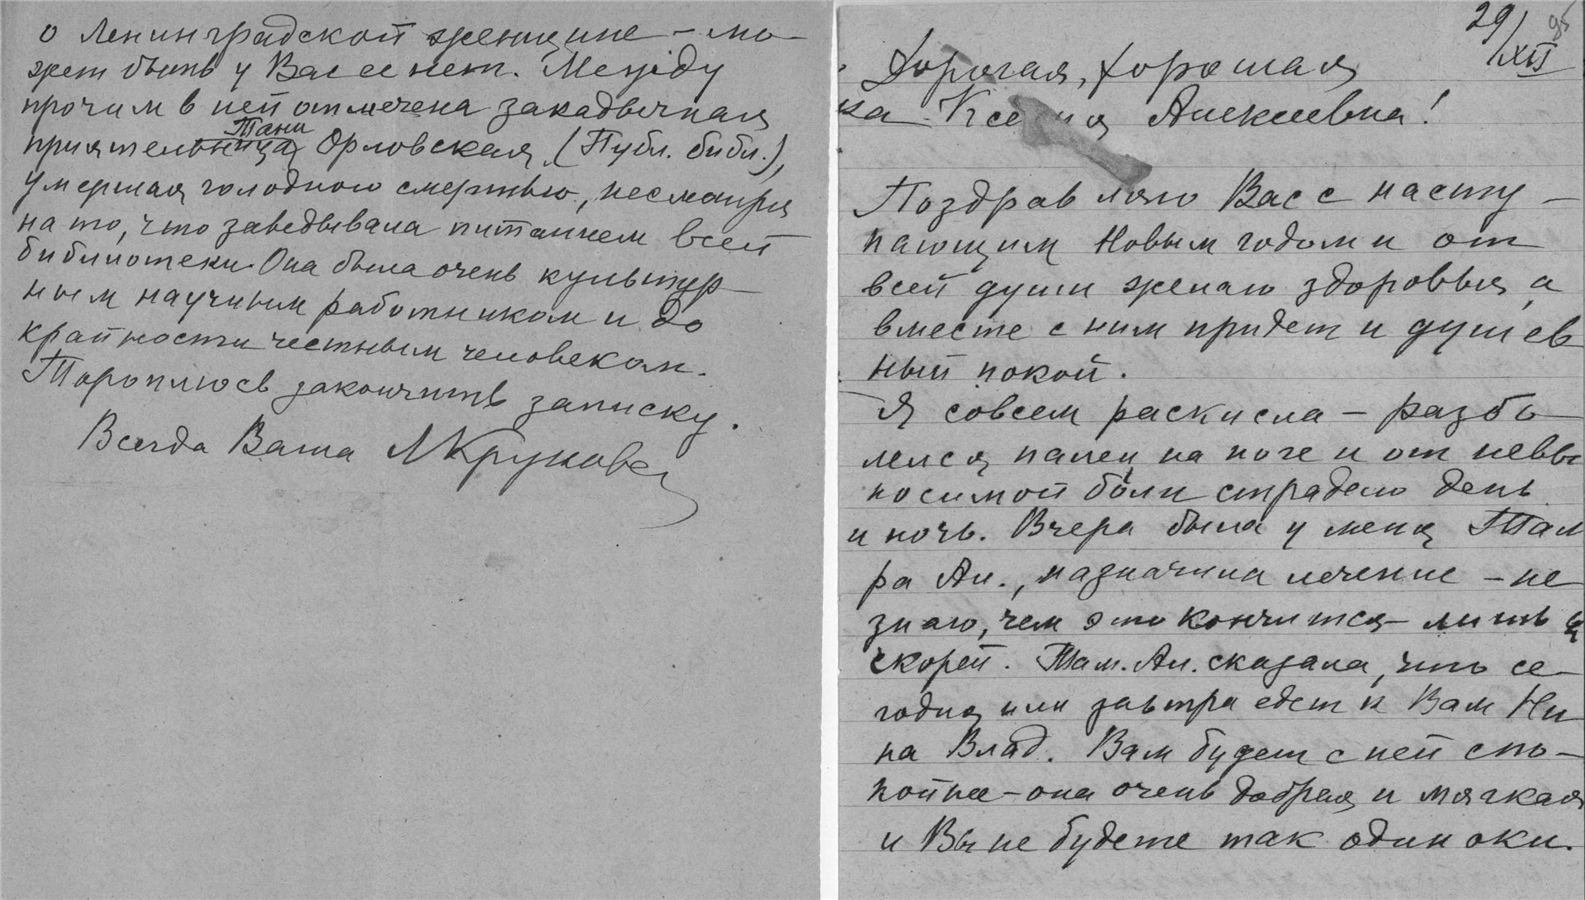 о Ленинградской женщине – мо-
жет быть у Вас ее нет. Между
прочим в ней отмечена закадычная
Тани
приятельница Орловская (Публ. библ.),
умершая голодною смертью, несмотря
на то, что заведывала питанием всей
библиотеки. Она была очень культур-
ным научным работником и до
крайности честным человеком.
Тороплюсь закончить записку.
Всегда Ваша
29/XII
95
Дорогая, хорошая
Ксения Алексеевна!
Поздравляю Вас с насту-
пающим Новым годом и от
всей души желаю здоровья, а
вместе с ним придет и душев
ный покой.
Я совсем раскисла – разбо-
лелся палец на ноге и от невы
носимой боли страдаю день
и ночь. Вчера была у меня Там
ра Ал., назначила лечение – не
знаю, чем это кончится – лишь бы
скорей. Там. Ал. сказала, что се-
годня или завтра едет к Вам Ни
на Влад. Вам будет с ней спо-
койнее – она очень добрая и мягкая
и Вы не будете так одиноки.